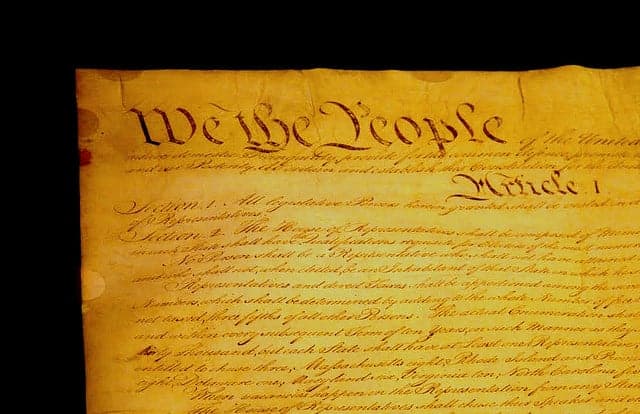 We the People of the United
insure domestic Tranquility, provide for the common defence, promote
and our Posterity, do ordain and establish this Constitution for the
Article I
Section. 1. All legislative Powers herein granted shall be vested in a
of Representatives.
Section. 2. The House of Representatives shall be composed of
in each State shall have Qualifications requisite for Electors of the most
No Person shall be a Representative who shall not have attained
and who shall not, when elected, be an Inhabitant of that State in which he
Representatives and direct Taxes shall be apportioned among the
Numbers, which shall be determined by adding to the whole Number of free
not taxed, three fifths of all other Persons. The actual Enumeration
and within every subsequent Term of ten Years, in such Manner as they
thirty Thousand, but each State shall have at Least one Representative
entitled to chuse three, Massachusetts eight, Rhode Island and
eight, Delaware one, Maryland six, Virginia ten, North Carolina
When vacancies happen in the Representation from any State
The House of Representatives shall chuse their Speaker and